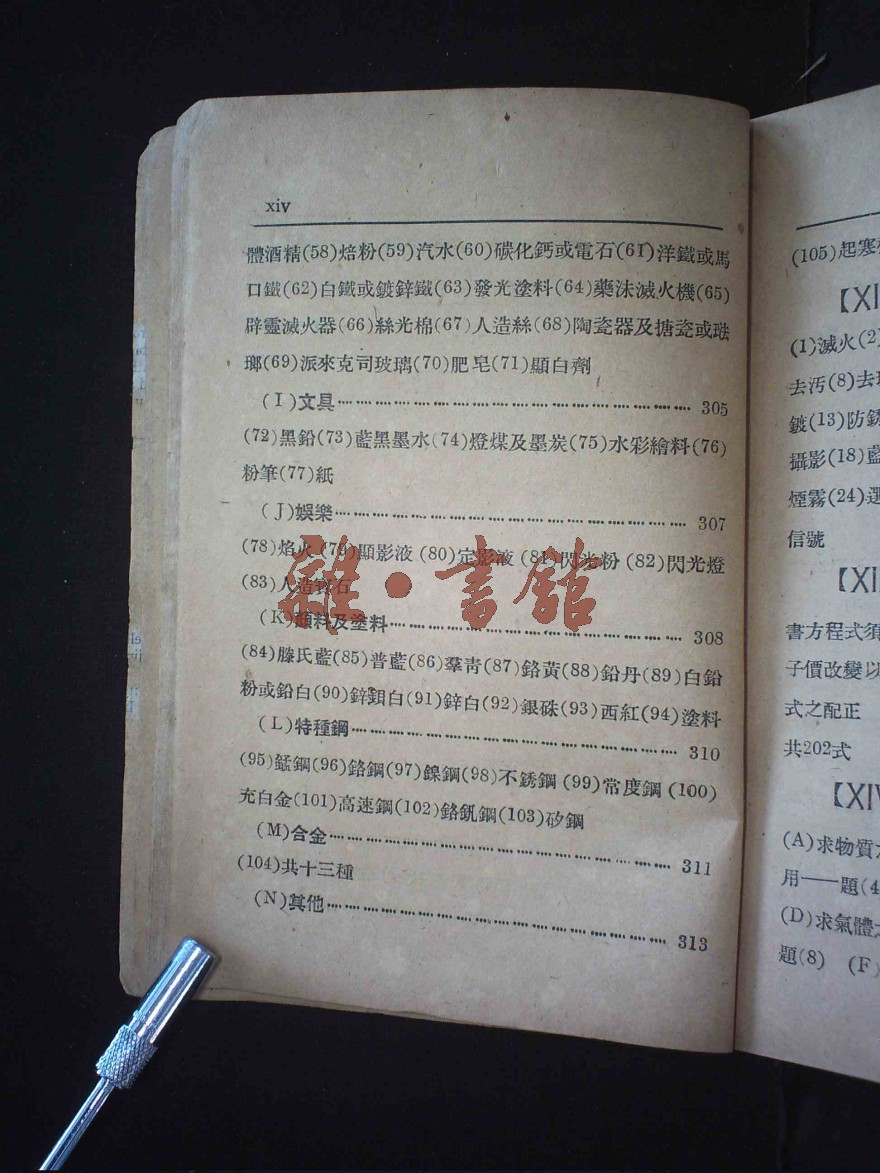 xiv
體酒精(58)焙粉(59)汽水(60)碳化鈣或電石(61)洋鐵或馬
口鐵(62)白鐵或鍍鋅鐵(63)發光塗料(64)藥沫滅火機(65)
辟靈滅火器(66)絲光棉(67)人造絲(68)陶瓷器及搪瓷或琺
瑯(69)派來克司玻璃(70)肥皂(71)顯白劑
(I)文具 305
(72)黑鉛(73)藍黑墨水(74)燈煤及墨炭(75)水彩繪料(76)
粉筆(77)紙
(J)娛樂 307
(78)焰火(79)顯影液(80)定影液(81)閃光粉(82)閃光燈
(83)人造寶石
(K)顏料及塗料 308
(84)滕氏藍(85)普藍(86)羣靑(87)鉻黃(88)鉛丹(89)白鉛
粉或鉛白(90)鋅鋇白(91)鋅白(92)銀硃(93)西紅(94)塗料
(L)特種鋼 310
(95)錳鋼(96)鉻鋼(97)鎳鋼(98)不銹鋼(99)常度鋼(100)
充白金(101)高速鋼(102)鉻釩鋼(103)矽鋼
(M)合金 311
(104)共十三種
(N)其他 313
雜·書館
(105)起塞
【XI
(1)滅火(2)
去汚(8)去
鍍(13)防銹
攝影(18)藍
煙霧(24)選
信號
【XI
書方程式須
子價改變以
式之配正
共202式
【XIV
(A)求物質
用——題(4
(D)求氣體
題(8) (F)